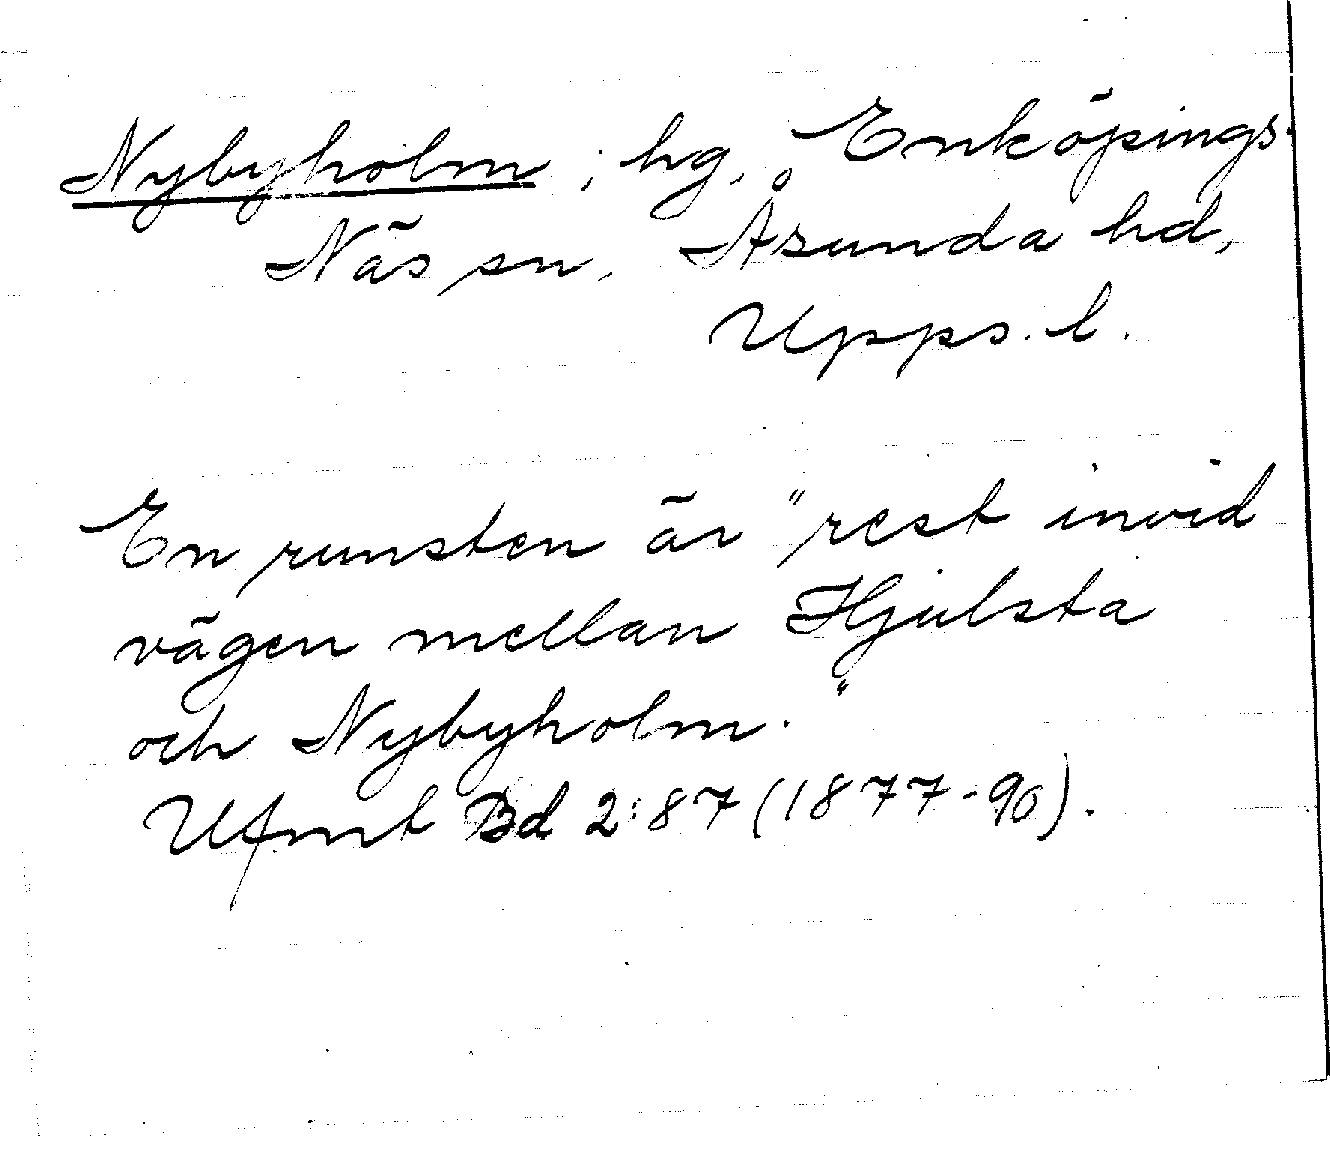 Nybyholm, hg, Enköpings-
Näs sn, Åsunda hd,
Upps. l.
En runsten är "rest invid
vägen mellan Hjulsta
och Nybyholm."
Ufmt Bd 2:87 (1877-90).